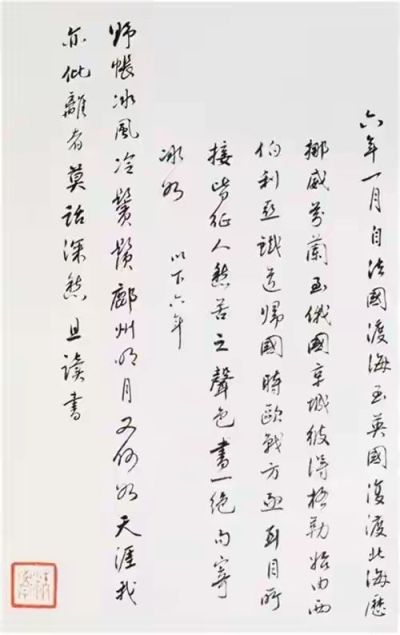 六年一月自法國渡海至英國復渡北海歷
挪威芬蘭至俄國京城彼得格勒始由西
伯利亞鐵道歸國時歐戰方亟耳目所
接皆征人愁苦之聲色書一絕句寄
冰如 以下六年
野帳冰風冷鬢鬚鄜州明月又何如天涯我
亦仳離者莫話深愁且讀書